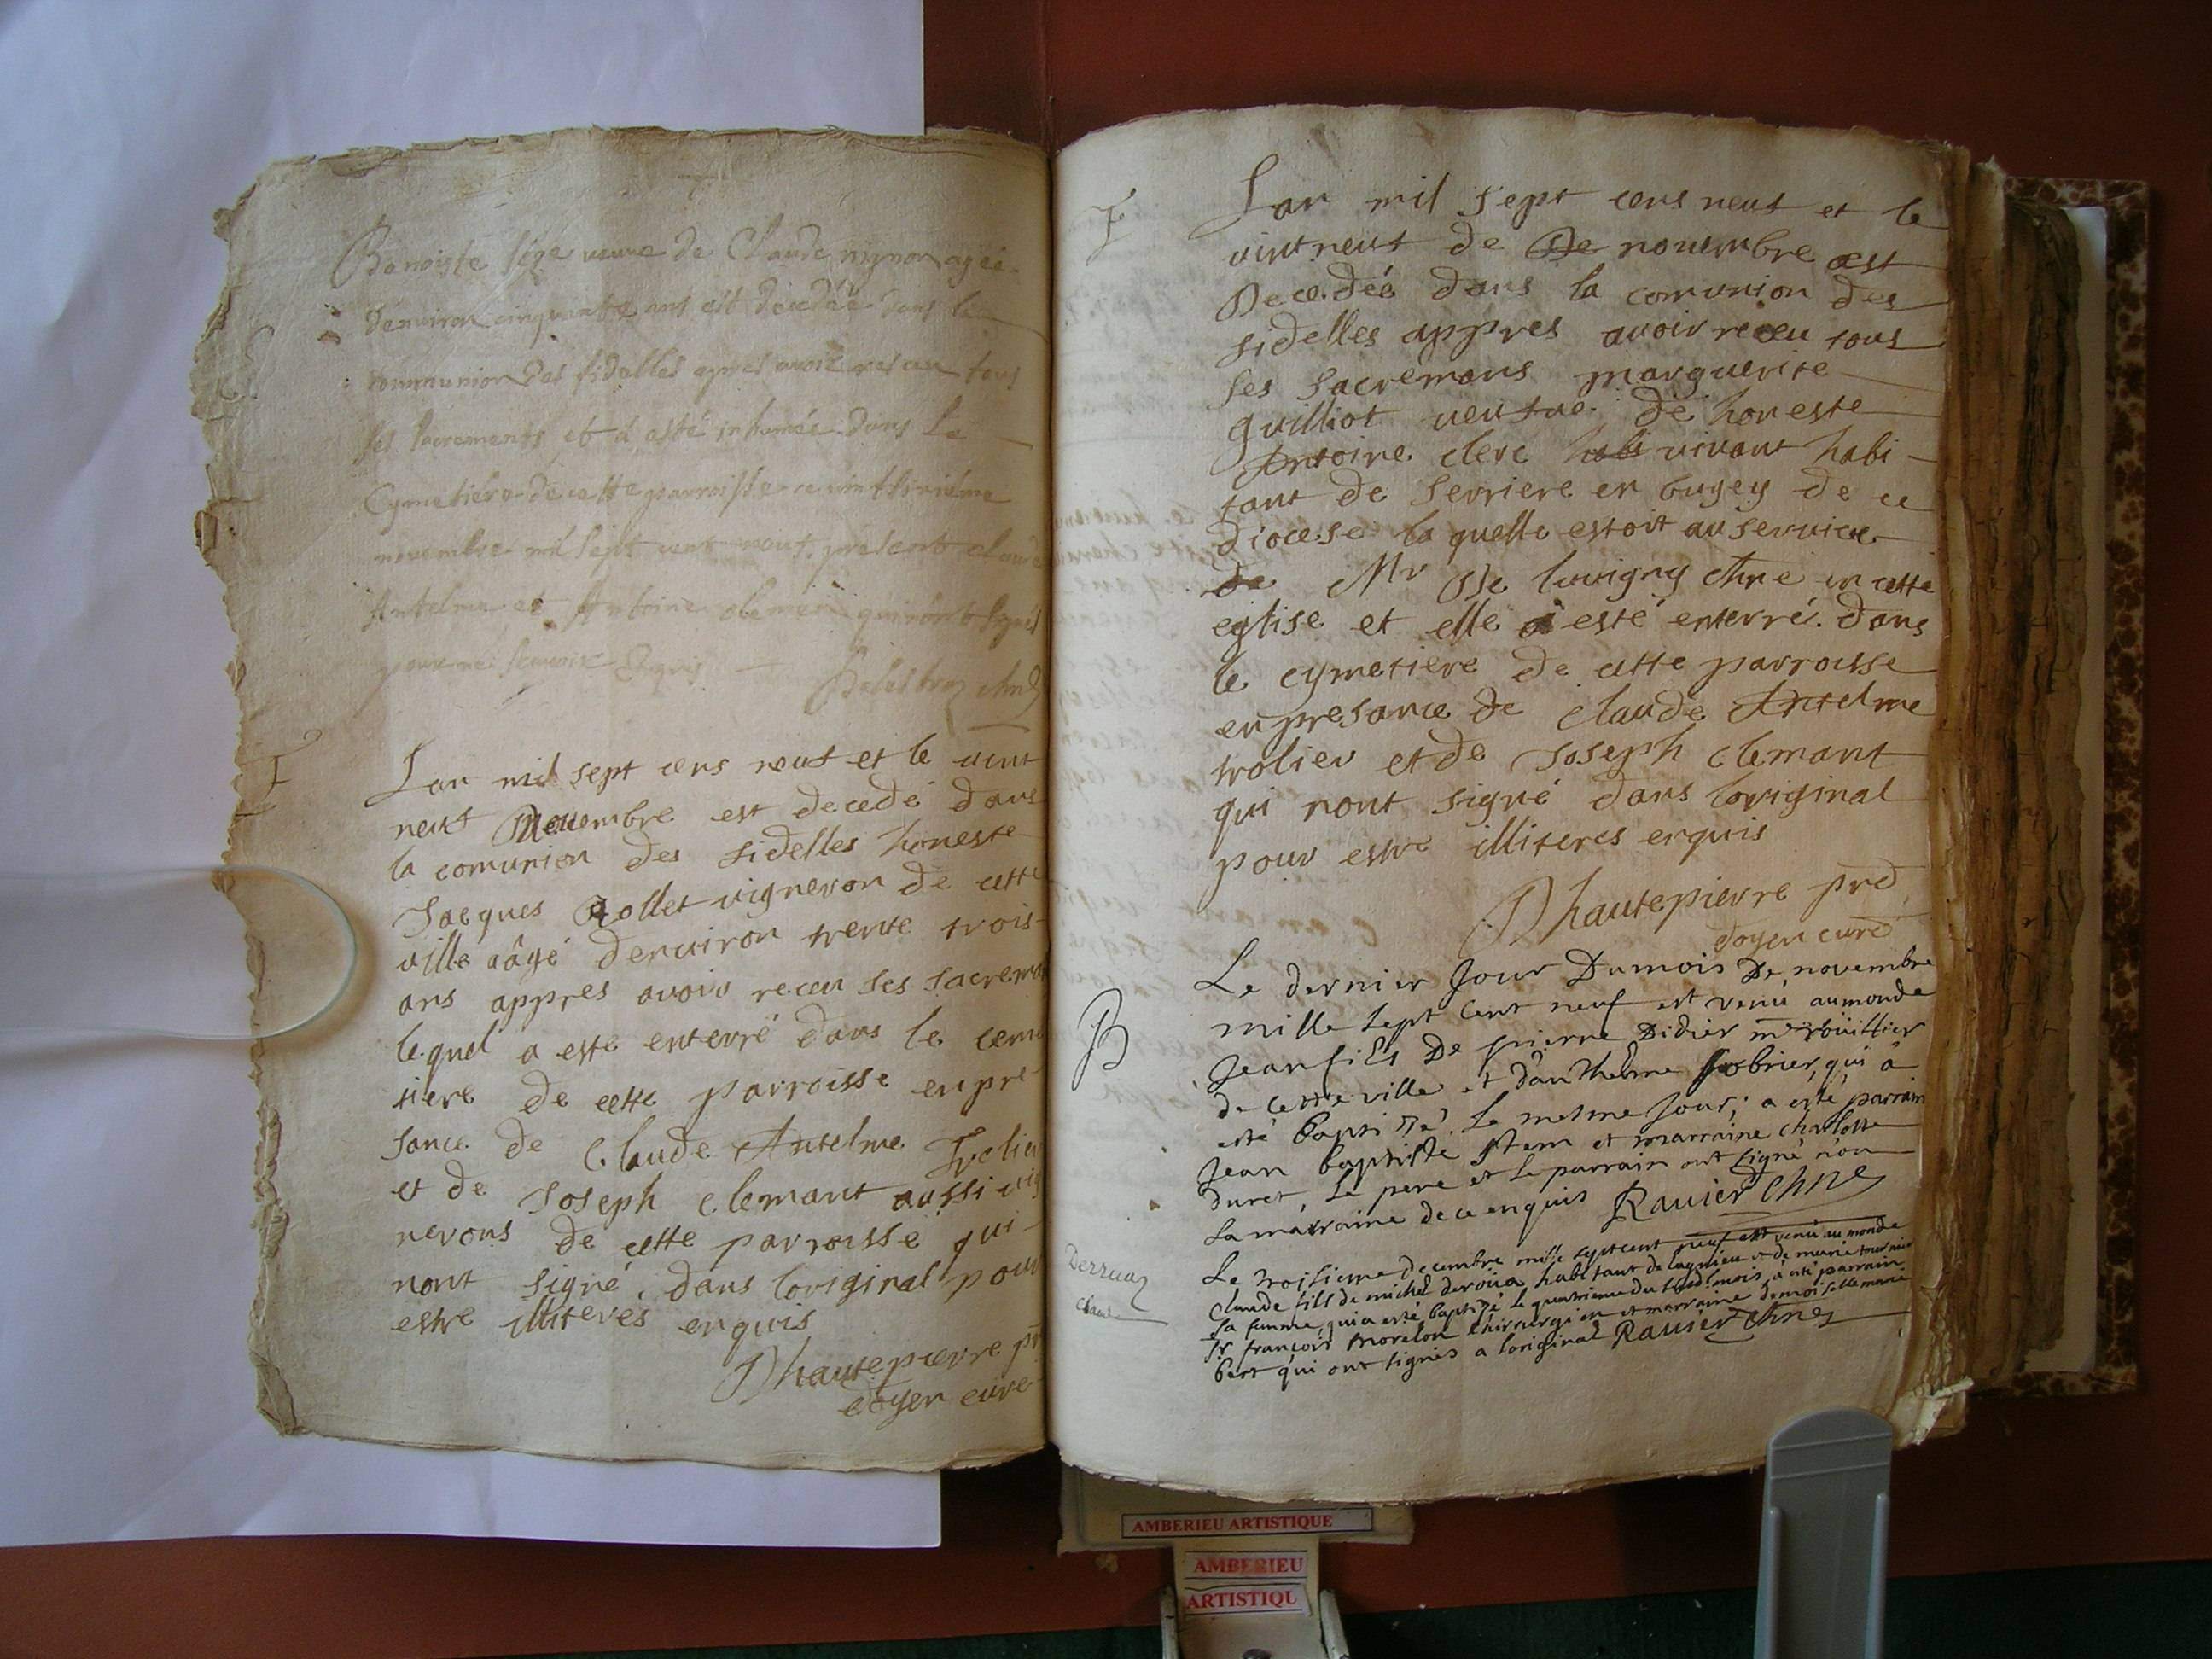 Benoiste veuve de Claude mynon agée
denviron cinquante ans est decedée dans la
communion des fidelles apres avoir receu tous
ses sacrements et a esté inhumée dans le
Cymetiere de cette parroisse ce
novembre mil sept cent neuf, present claude
Antelme et Antoine clemen qui nont signés
pour ne scavoir Enquis
F
Lan mil sept cens neuf et le vint
neuf Novembre est decedé dans
la comunion des fidelles honeste
Jacques Rollet vigneron de cette
ville aâgé denviron trente trois
ans appres avoir receu ses sacrema
lequel a esté enterré dans le ceme
tiere de cette parroisse enpre
sance de Claude Antelme Trolier
et de Joseph Clemant aussi vig
nerons de cette parroisse qui
nont signé dans loriginal pour
estre illiteres enquis
Dhautepierre pr
doyen curé
F
Lan mil sept cens neuf et le
vintneuf de De novembre est
Decedée dans la comunion des
fidelles appres avoir receu tous
ses sacremans marguerite
guilliot veufve de honeste
Antoine clerc habi vivant habi-
tant de serriere en bugey de ce
diocese laquelle estoit au service
de Mr De luvigny Chne en cette
eglise et elle a esté enterré dans
le cymetiere de cette parroisse
enpresance de Claude Antelme
trolier et de Joseph Clemant
qui nont signé dans loriginal
pour estre illiteres enquis
Dhautepierre prd
doyen curé
B
Le dernier Jour Dumois De novembre
mille sept Cent neuf est venu aumonde
Jean fils De pierre Didier me roüillier
de Cette ville et danthelme qui â
esté baptisé Le mesme Jour; a esté parrain
Jean baptiste et marraine charlotte
duret, Le pere et Le parrain ont signé non
La marraine de ce enquis Ravier Chne
Derruaz
Claude
Le troisieme decembre mille sept cent neuf est venu au monde
Claude fils de michel deroüa habitant de lagnieu et de marie tournier
sa femme, qui a esté baptisé le quatrieme du susd. mois, a esté parrain
Sr françois morelon Chirurgien et marraine demoiselle marie
bert qui ont signés a loriginal Ravier Chne
AMBERIEU ARTISTIQUE
AMBERIEU
ARTISTIQU